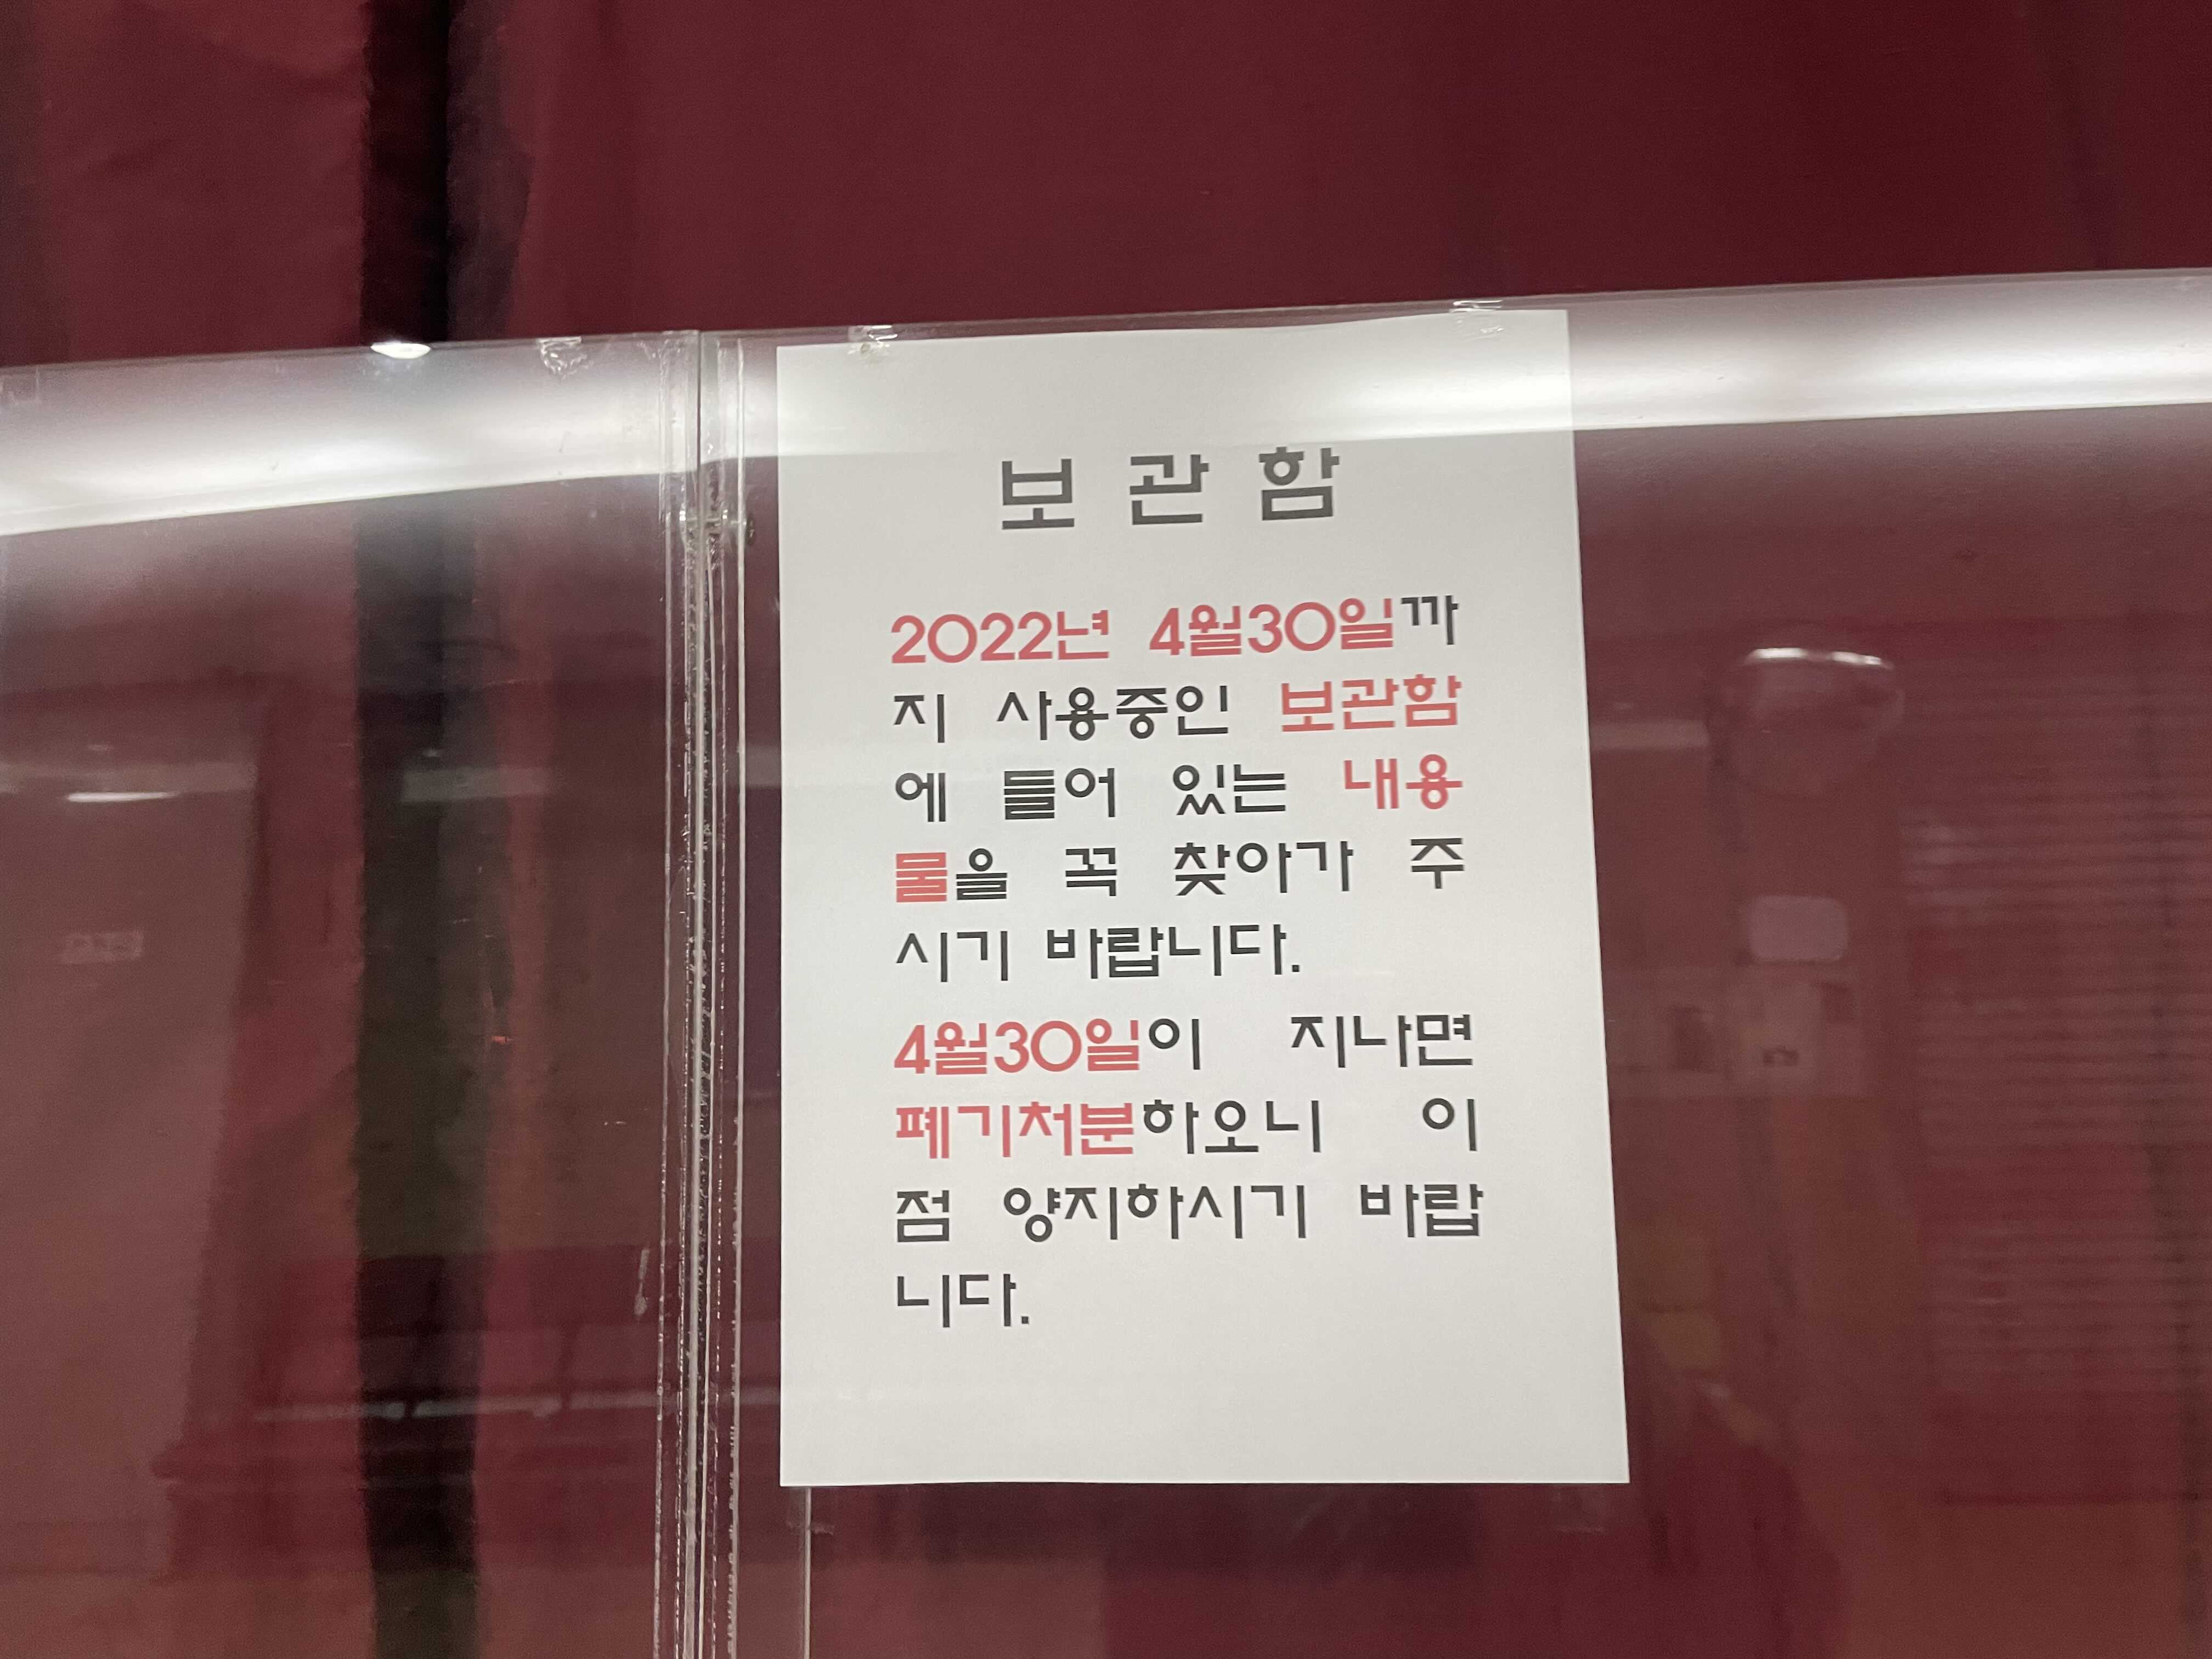 보 관 함
2022년 4월30일까
지 사용중인 보관함
에 들어 있는 내용
물을 꼭 찾아가 주
시기 바랍니다.
4월30일이 지나면
폐기처분하오니 이
점 양지하시기 바랍
니다.